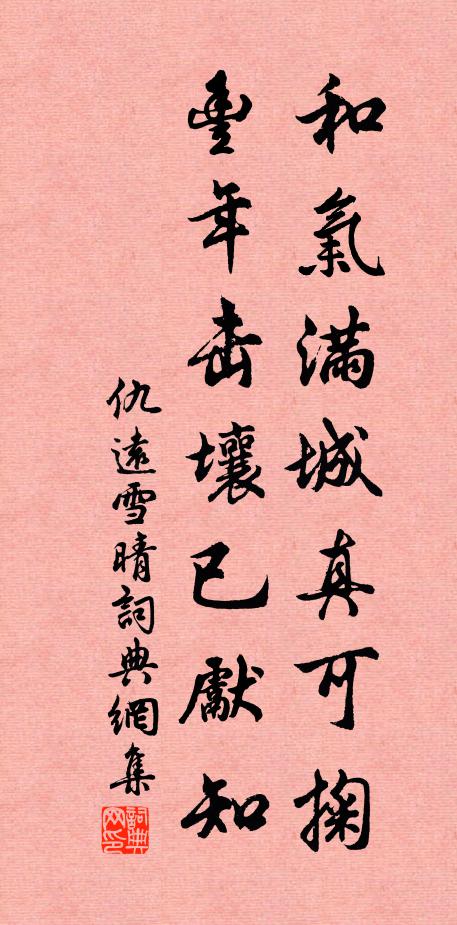 和氣滿城真可掬
豐年击壤已獻知
仇遠雪晴詞典網集
詞典网印